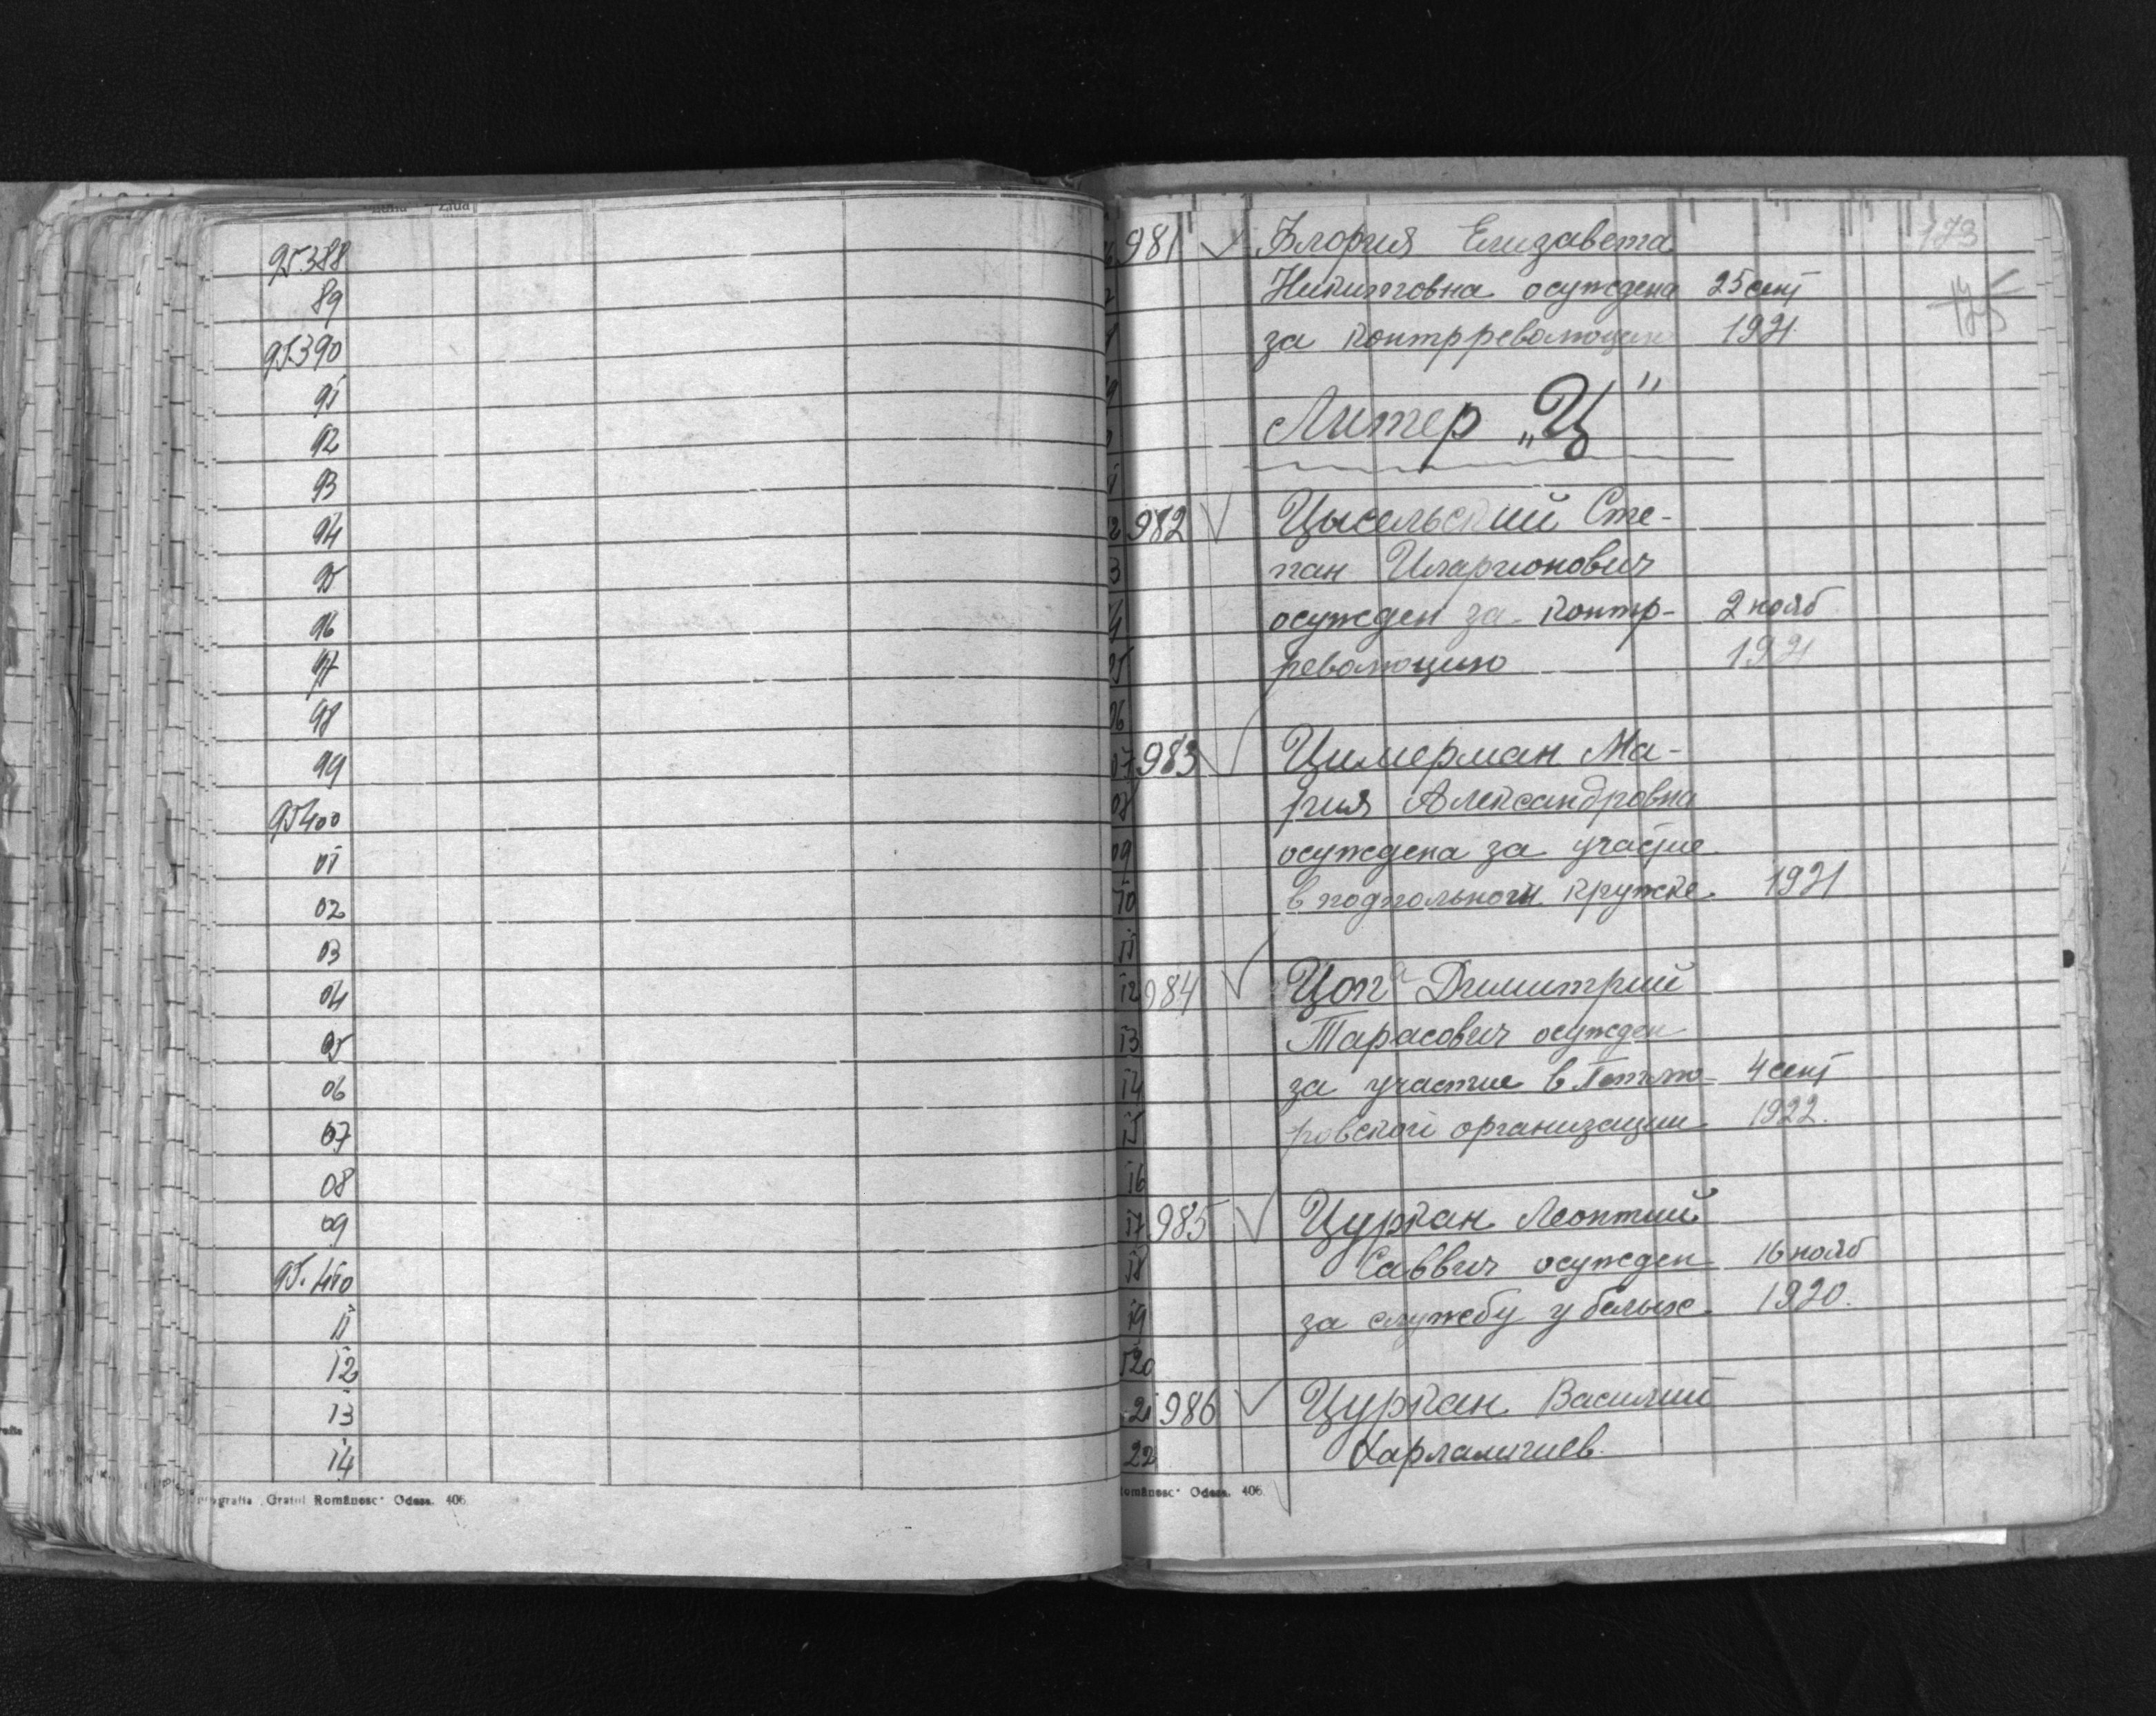 Ziua
95388
89
95390
91
92
93
94
95
96
97
98
99
95400
01
02
03
04
05
06
07
08
09
95.410
11
12
13
14
Tipografia „Graiul Românesc" Odesa. 406
173
981 Флория Елизавета
Никитовна осуждена 25 сент
за контрреволюцию 1921
Литер „Ц"
982 Цысельский Сте-
пан Иларионович
осужден за контр- 2 нояб
революцию 1921
07 983 Цимерман Ма-
08 рия Александровна
09 осуждена за участие
10 в подпольном кружке. 1921
11
12 984 Цопа Димитрий
13 Тарасович осужден
14 за участие в Петлю- 4 сент
15 ровской организации 1922.
16
17 985 Цуркан Леонтий
18 Саввич осужден 16 нояб
19 за службу у белых. 1920.
20
21 986 Цуркан Василий
22 Харлампиев.
Românesc" Odesa. 406